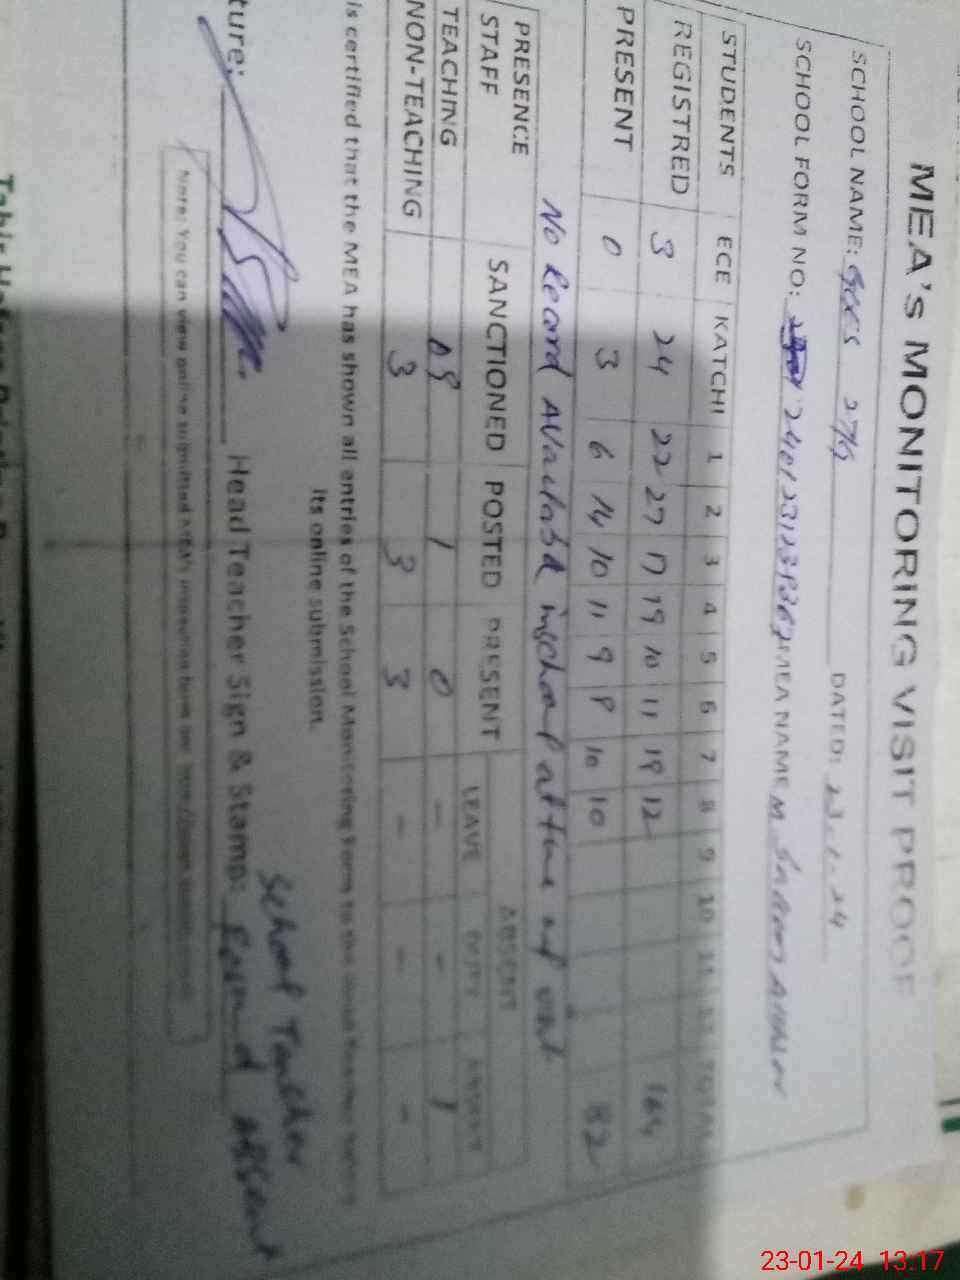 MEA's MONITORING VISIT PROOF
SCHOOL NAME: DATED: 23.1.24
SCHOOL FORM NO: MEA NAME M
STUDENTS ECE KATCHI 1 2 3 4 5 6 7 8 9 10 11 12 TOTAL
REGISTRED 3 24 22 27 17 19 10 11 19 12 164
PRESENT 0 3 6 14 10 11 9 8 10 10 82
No Record in school at time of visit
PRESENCE STAFF SANCTIONED POSTED PRESENT ABSENT
LEAVE DUTY ABSENT
TEACHING 09 1 0 - - 1
NON-TEACHING 3 3 3 - - -
is certified that the MEA has shown all entries of the School Monitoring Form to the Head Teacher before
its online submission.
School Teacher
ture: Head Teacher Sign & Stamp: Found Absent
Note: You can view online submitted MEA's inspection form on:
23-01-24 13:17